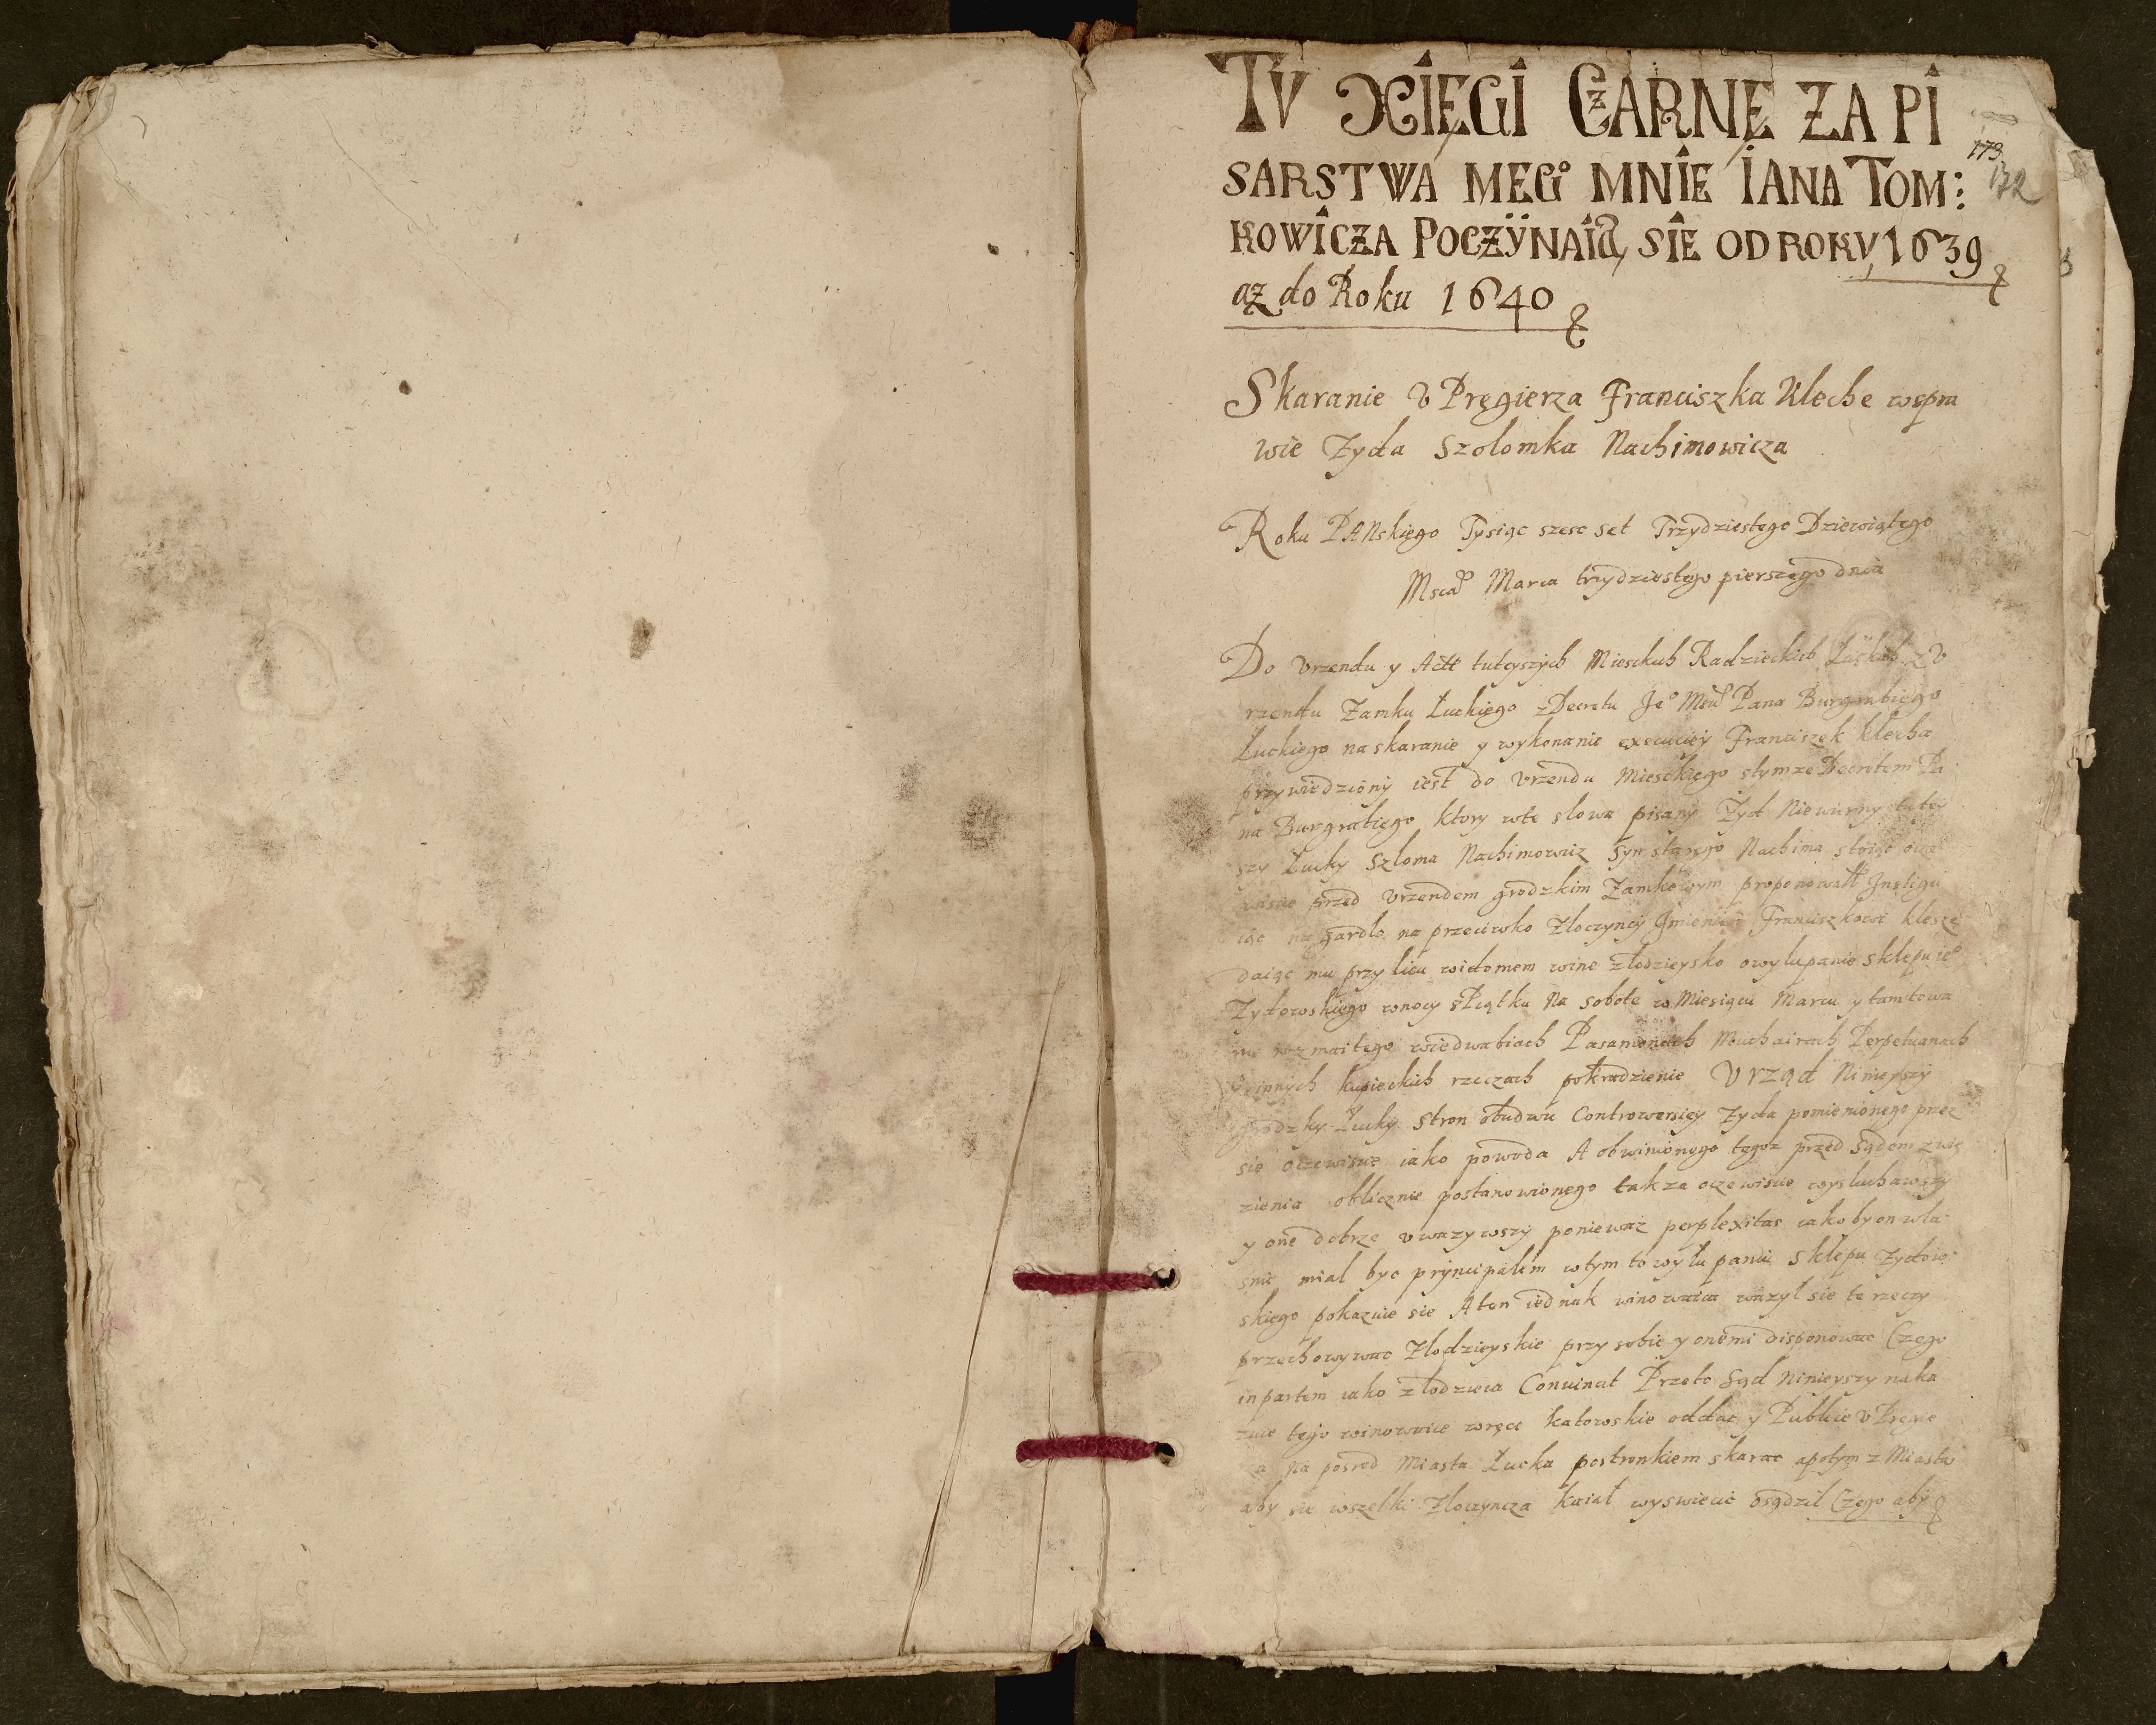 TV XIĘGI CZARNE ZA PI
SARSTWA MEGo MNIE IANA TOM:
KOWICZA POCZŸNAIĄ SIE OD ROKV 1639
aż do Roku 1640
173
172
Skaranie v Pręgierza Franciszka Kleche wspra
wie Zyda Szolomka Nachimowicza
Roku PANskiego Tysiąc szesc set Trzydziestego Dziewiątego
Msca Marca trzydziestego pierszego dnia
Do Vrzendu y Actt tuteyszych Miesckich Radzieckich Łuckich z V
rzendu Zamku Łuckiego z Decretu Jeo Mści Pana Burgrabiego
Łuckiego na skaranie y wykonanie execuciey Franciszek klecha
przywiedziony iest do vrzendu Miesckiego stymze Decretem Pa
na Burgrabiego ktory wte slowa pisany Żyd Niewierny tutey
szy Łucky Szloma Nachimowicz Syn starego Nachima stoiąc ocze
wisce przed Vrzendem grodzkim Zamkowym proponowałł Instigu
iąc na gardlo na przeciwko Zloczyncy Imieniem Franciszkowi klesze
daiąc mu przy licu widomem wine zlodzieysko o wylupanie sklepu ieo
Zydowskiego wnocy s Piątku Na sobote w Miesiącu Marcu y tam towa
ru rozmaitego wiedwabiach Pasamonach Muchairach Perpetuanach
y innych kupieckich rzeczach pokradzienie Vrząd Ninieyszy
grodzky Łucky stron obudwu Controwersiey Zyda pomienionego prze
sie oczewisce iako powoda A obwinionego tegoz przed Sądem z wię
zienia oblicznie postanowionego takza oczewisce wysluchawszy
y one dobrze vwazywszy poniewaz perplexitas iakoby on wla
snie mial byc pryncipalem wtym to wylupaniu Sklepu Zydow
skiego pokazuie sie A ten iednak winowaica wazyl sie te rzeczy
przechowywac Zlodzieyskie przy sobie y onemi disponowac Czego
in partem iako zlodzieia Conuincit Przeto Sąd Ninieyszy naka
zuie tego winowaice wręce katowskie oddac y Publice v Pręgie
rza na posrod Miasta Łucka postronkiem skarac a potym z Miasta
aby sie wszelki Zloczyncza kaiał wyswiecic osądzil Czego aby